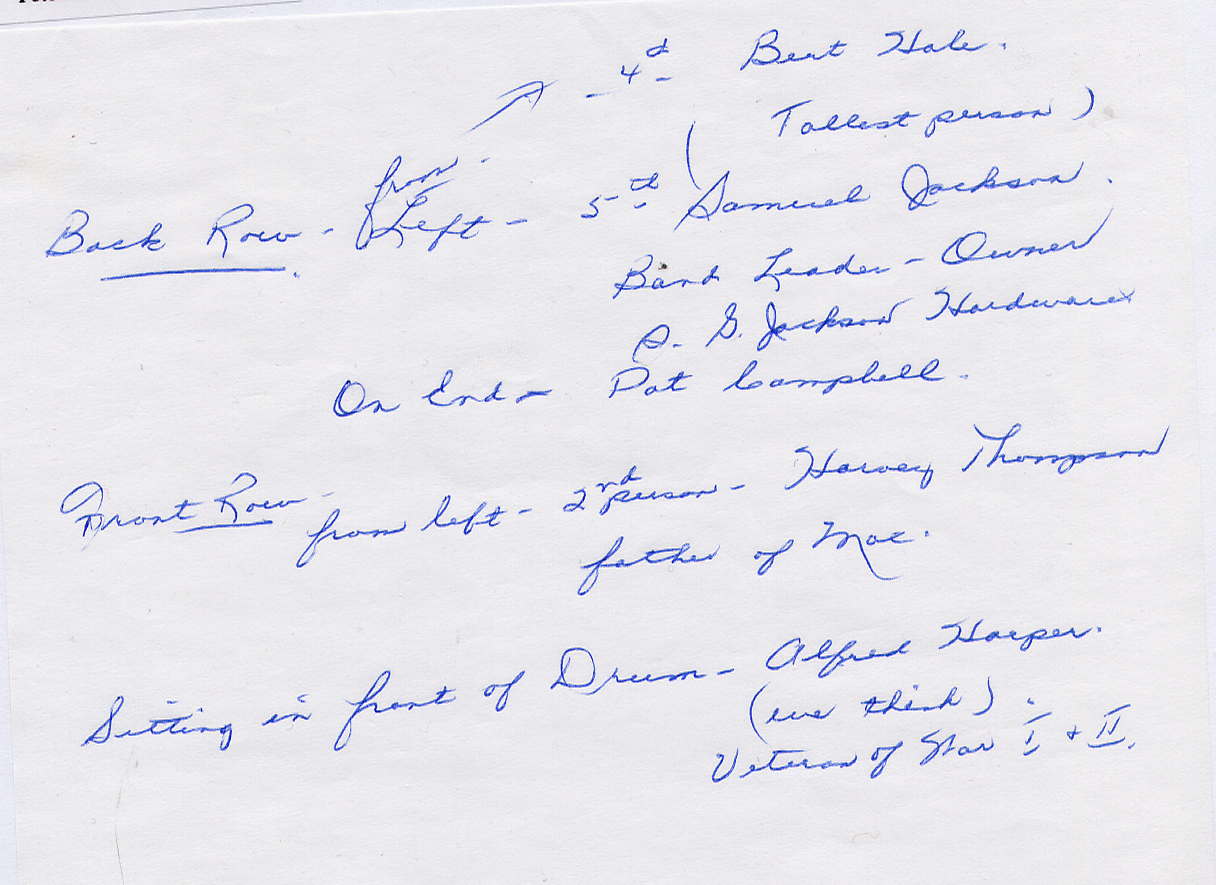 - 4d - Bert Hale.
(Tallest person)
Back Row - from Left - 5th - Samuel Jackson.
Band Leader - Owner
S. G. Jackson Hardware
On End - Pat Campbell.
Front Row - from left - 2nd person - Harvey Thompson
father of Mac.
Sitting in front of Drum - Alfred Harper.
(we think).
Veteran of War I + II.